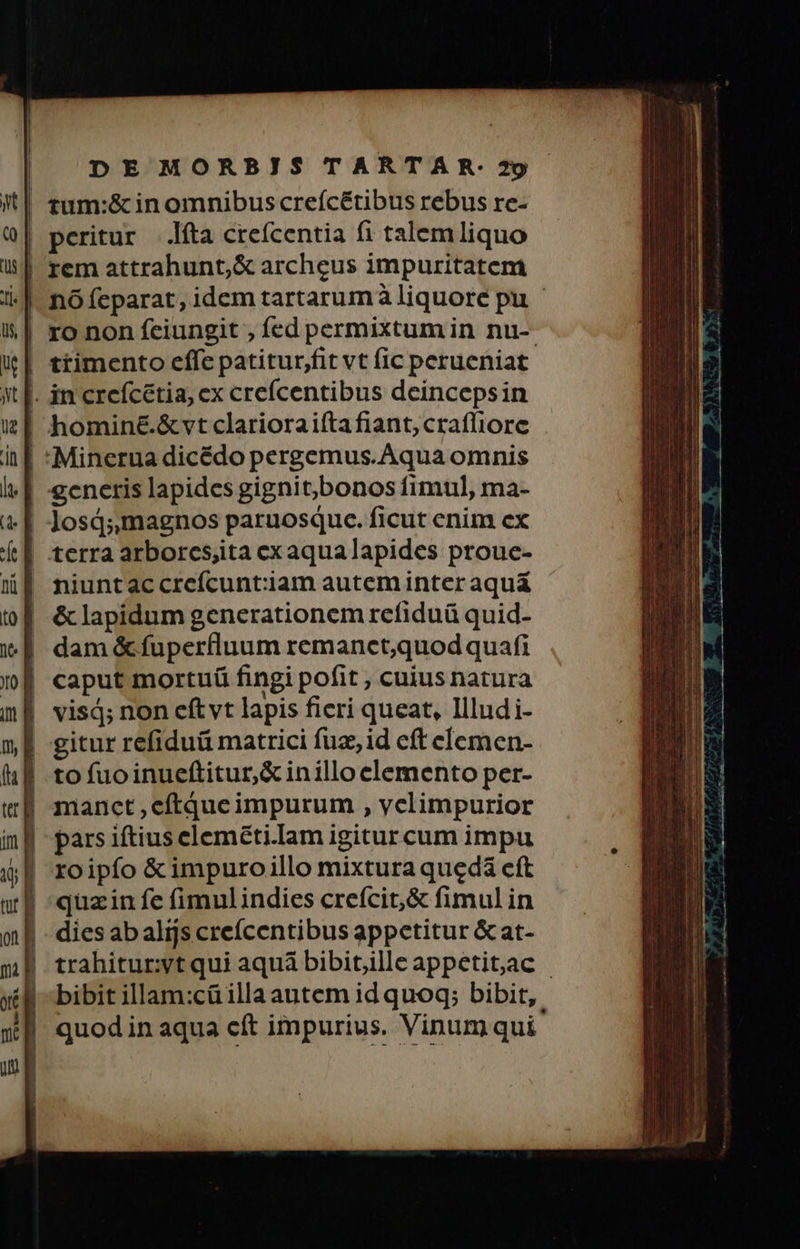 DE MORBIS TARTAR. 29
tum:& in omnibus creſcẽtibus rebus re-
peritur Iſta creſcentia ſi talem liquo
rem attrahunt,& archeus impuritatem
nõ ſeparat, idem tartarum à liquore pu
ro non ſeiungit , ſed permixtum in nu-
trimento eſſe patitur,fit vt ſic perueniat
in creſcẽtia, ex creſcentibus deinceps in
hominẽ.& vt clariora iſta fiant, craſſiore
Minerua dicẽdo pergemus.Aqua omnis
generis lapides gignit,bonos ſimul, ma-
losq;,magnos paruosque. ſicut enim ex
terra arbores,ita ex aqua lapides proue-
niunt ac creſcunt:iam autem inter aquã
& lapidum generationem reſiduũ quid-
dam & ſuperfluum remanet,quod quaſi
caput mortuũ fingi poſit , cuius natura
visq; non eſt vt lapis fieri queat, Illud i-
gitur reſiduũ matrici ſuæ, id eſt elemen-
to ſuo inueſtitur,& in illo elemento per-
manet , eſtque impurum , velimpurior
pars iſtius elemẽti.Iam igitur cum impu
ro ipſo & impuro illo mixtura quędã eſt
quæ in ſe ſimul indies creſcit,& ſimul in
dies ab alijs creſcentibus appetitur & at-
trahitur:vt qui aquã bibit,ille appetit,ac
bibit illam:cũ illa autem id quoq; bibit,
quod in aqua eſt impurius. Vinum qui